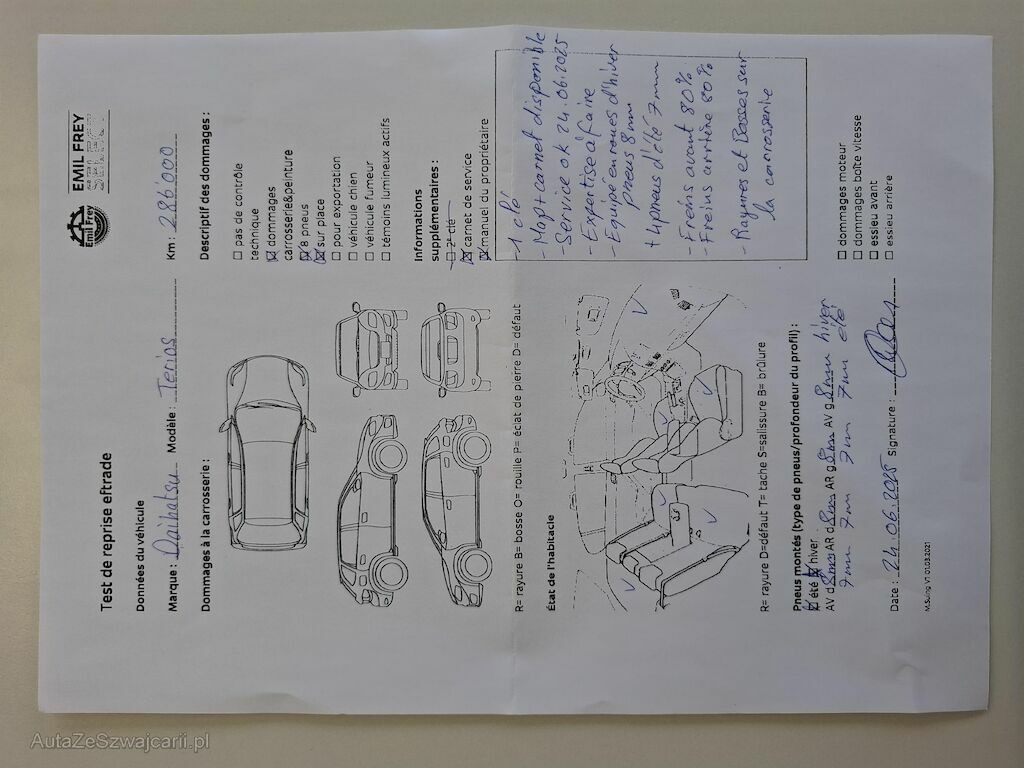 Test de reprise eftrade
EMIL FREY
Emil Frey
Données du véhicule
Marque : Daihatsu Modèle : Terios Km : 286000
Dommages à la carrosserie :
Descriptif des dommages :
☐ pas de contrôle
technique
☒ dommages
carrosserie&peinture
☒ 8 pneus
☒ sur place
☐ pour exportation
☐ véhicule chien
☐ véhicule fumeur
☐ témoins lumineux actifs
Informations
supplémentaires :
☐ 2e clé
☒ carnet de service
☒ manuel du propriétaire
R= rayure B= bosse O= rouille P= éclat de pierre D= défaut
État de l'habitacle
- 1 clé
- Mapt carnet disponible
- Service ok 24.06.2025
- Expertise à faire
- Equipé en roues d'hiver
pneus 8mm
+ 4 pneus d'été 7mm
- Freins avant 80%
- Freins arrière 80%
- Rayures et Bosses sur
la carrosserie
R= rayure D=défaut T= tache S=salissure B= brûlure
Pneus montés (type de pneus/profondeur du profil) :
☒ été ☒ hiver
AV d 8mm AR d 8mm AR g 8mm AV g 8mm hiver
7mm 7mm 7mm 7mm été
☐ dommages moteur
☐ dommages boîte vitesse
☐ essieu avant
☐ essieu arrière
Date : 24.06.2025 Signature :
M.Suing V1 01.03.2021
AutaZeSzwajcarii.pl